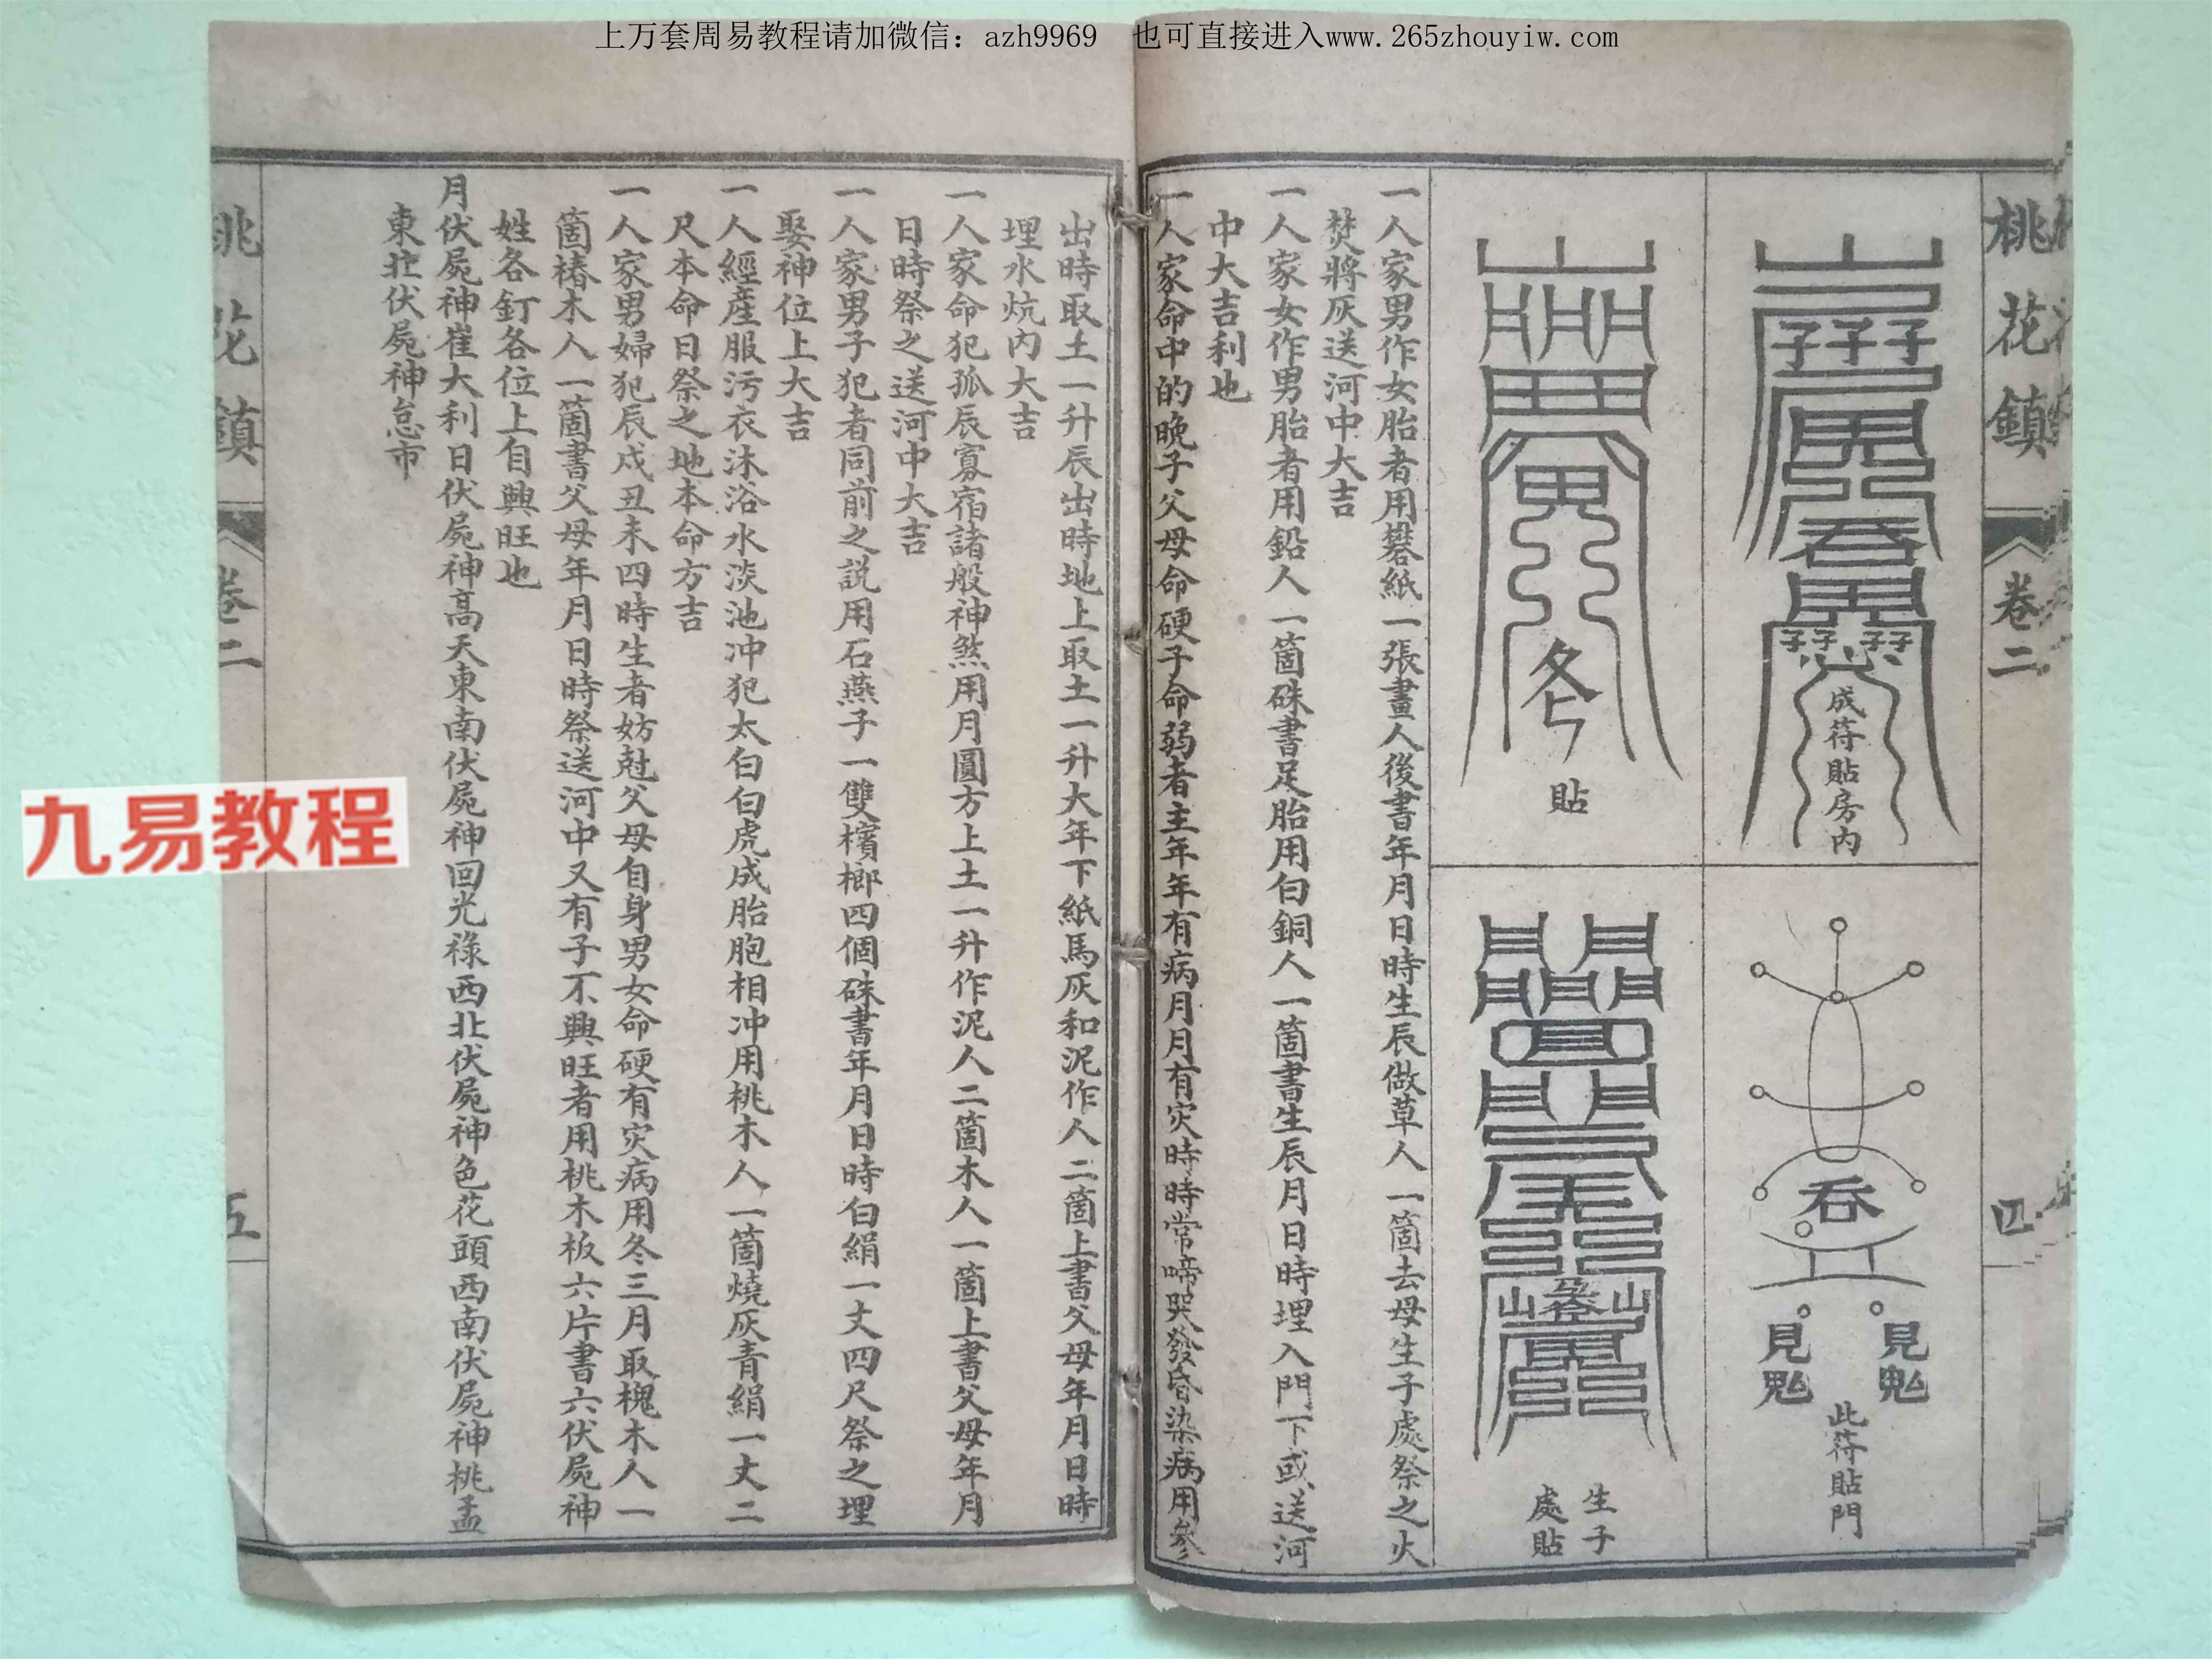 上万套周易教程请加微信：azh9969 也可直接进入www.265zhouyiw.com
桃花鎮
卷二
四
成符貼房內
吞
見鬼
見鬼
此符貼門
貼
生子
處貼
一人家男作女胎者用礬紙一張畫人後書年月日時生辰做草人一箇去母生子處祭之火
焚將灰送河中大吉
一人家女作男胎者用鉛人一箇硃書足胎用白銅人一箇書生辰月日時埋入門下或送河
中大吉利也
一人家命中的晚子父母命硬子命弱者主年年有病月月有灾時時常啼哭發昏染病用參
出時取土一升辰出時地上取土一升大年下紙馬灰和泥作人二箇上書父母年月日時
埋水炕內大吉
一人家命犯孤辰寡宿諸般神煞用月圓方上土一升作泥人二箇木人一箇上書父母年月
日時祭之送河中大吉
一人家男子犯者同前之説用石燕子一雙檳榔四個硃書年月日時白絹一丈四尺祭之埋
娶神位上大吉
一人經産服污衣沐浴水淡池冲犯太白白虎成胎胞相冲用桃木人一箇燒灰青絹一丈二
尺本命日祭之地本命方吉
一人家男婦犯辰戍丑未四時生者妨尅父母自身男女命硬有灾病用冬三月取槐木人一
箇椿木人一箇書父母年月日時祭送河中又有子不興旺者用桃木板六片書六伏屍神
姓各釘各位上自興旺也
月伏屍神崔大利日伏屍神高天東南伏屍神回光祿西北伏屍神色花頭西南伏屍神桃孟
東北伏屍神怠市
桃花鎮
卷二
五
九易教程